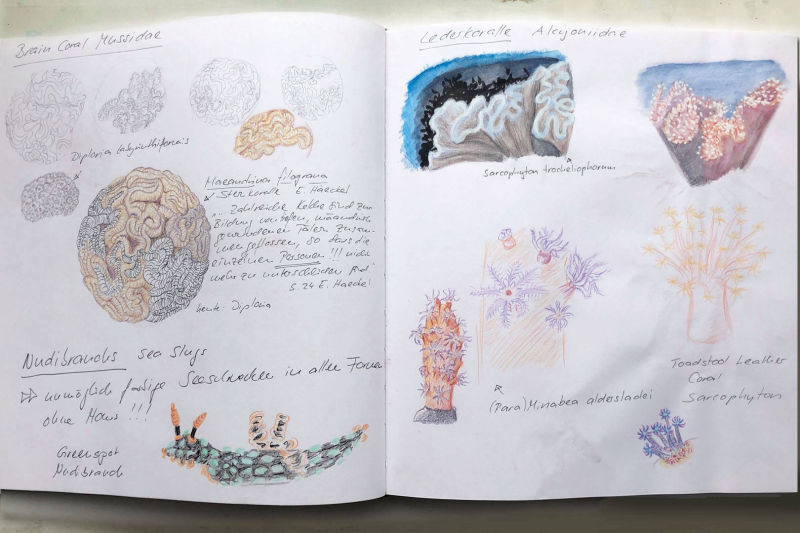 Brain Coral Mussidae
Diploria labyrinthiformis
Maeandrina filograna
Sternkoralle E. Haeckel
"... Zahlreiche Kelche sind zur
Bildung von tiefen, mäandrisch
gewundenen Tälern zusam-
mengeflossen, so dass die
einzelnen Personen!!! nicht
mehr zu unterscheiden sind
S. 24 E. Haeckel
heute: Diploria
Nudibranchs sea slugs
unmöglich farbige Seeschnecken in allen Formen
ohne Haus !!!
Greenspot
Nudibranch
Lederkoralle Alcyoniidae
Sarcophyton trocheliophorum
(Para)Minabea aldersladei
Toadstool Leather
Coral
Sarcophyton